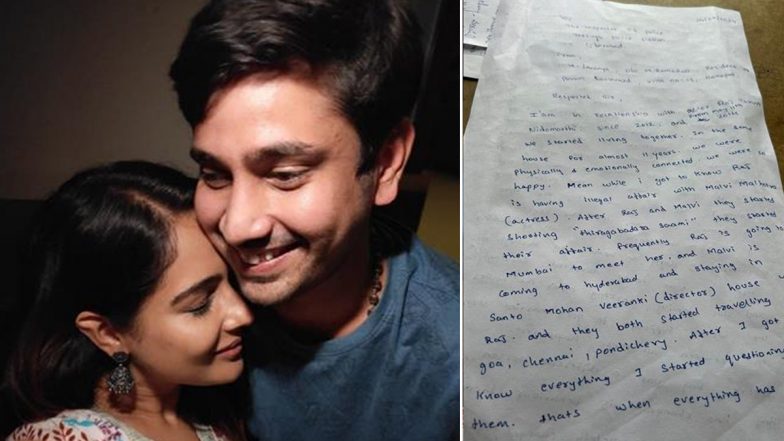 The inspector of police
Respected Sir,
I am in Relationship with actor Raj Tarun
Nidamarthi since 2012 and from may 11th 2014
we started living together. In the same
house for almost 11 years. we were
physically & emotionally connected we were so
happy. Mean while i get to know Raj
is having illegal affair with Malvi Malhotra
(actress). After Raj and Malvi they started
shooting "thiragabadara saami" they started
their affair. Frequently Raj is going to
Mumbai to meet her. and Malvi is
coming to hyderabad and staying in
Santo Mohan Veeranki (director) house
Raj. and they both started travelling
goa, chennai, pondichery. After I got
know everything I started questioning
them. thats when everything has